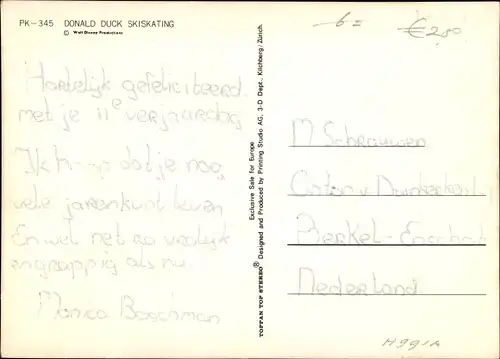 PK-345 DONALD DUCK SKISKATING
© Walt Disney Productions
6=
€2,50
Hartelijk gefeliciteerd
met je 11e verjaardag
Ik h p dat je nog
vele jaren kunt leven
En wel net zo vrolijk
en grappig als nu.
Monica Boschman
Exclusive Sale for Europe
TOPPAN TOP STEREO® Designed and Produced by Printing Studio AG, 3-D Dept., Kilchberg/Zürich.
M Schrauwen
Berkel-Enschot
Nederland
M991A